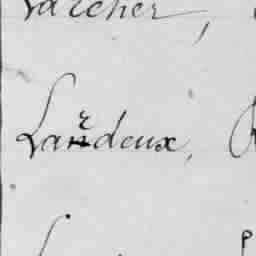 Larcher,
Lardeux,